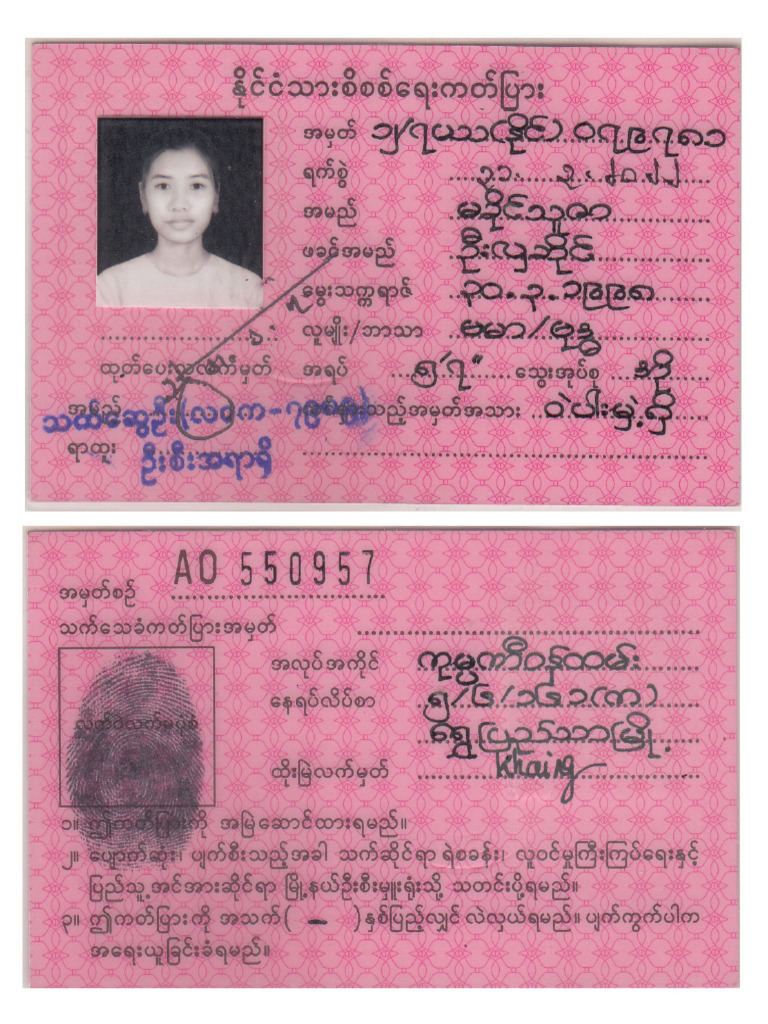 နိုင်ငံသားစိစစ်ရေးကတ်ပြား
အမှတ် ၁၂/၇ယသ(နိုင်) ၀၇၉၇၈၁
ရက်စွဲ ၃၁. ၃. ၂၀၂၂
အမည် မခိုင်သူဇာ
ဖခင်အမည် ဦးလှဆိုင်
မွေးသက္ကရာဇ် ၃၀.၃.၁၉၉၈
လူမျိုး/ဘာသာ ဗမာ/ဗုဒ္ဓ
ထုတ်ပေးသူလက်မှတ် အရပ် ၅'၇" သွေးအုပ်စု အို
အမည် ထင်ရှားသည့်အမှတ်အသား ဝဲပါးမှဲ့ရှိ
သက်ဆွေဦး(လဝက-
ရာထူး ဦးစီးအရာရှိ
AO 550957
အမှတ်စဉ်
သက်သေခံကတ်ပြားအမှတ်
အလုပ်အကိုင် ကုမ္ပဏီဝန်ထမ်း
နေရပ်လိပ်စာ ၅/၆/၁၆၁(က)
ရွှေပြည်သာမြို့
ထိုးမြဲလက်မှတ် Khaing
၁။ ဤကတ်ပြားကို အမြဲဆောင်ထားရမည်။
၂။ ပျောက်ဆုံး၊ ပျက်စီးသည့်အခါ သက်ဆိုင်ရာ ရဲစခန်း၊ လူဝင်မှုကြီးကြပ်ရေးနှင့်
ပြည်သူ့အင်အားဆိုင်ရာ မြို့နယ်ဦးစီးမှူးရုံးသို့ သတင်းပို့ရမည်။
၃။ ဤကတ်ပြားကို အသက်( – )နှစ်ပြည့်လျှင် လဲလှယ်ရမည်။ ပျက်ကွက်ပါက
အရေးယူခြင်းခံရမည်။